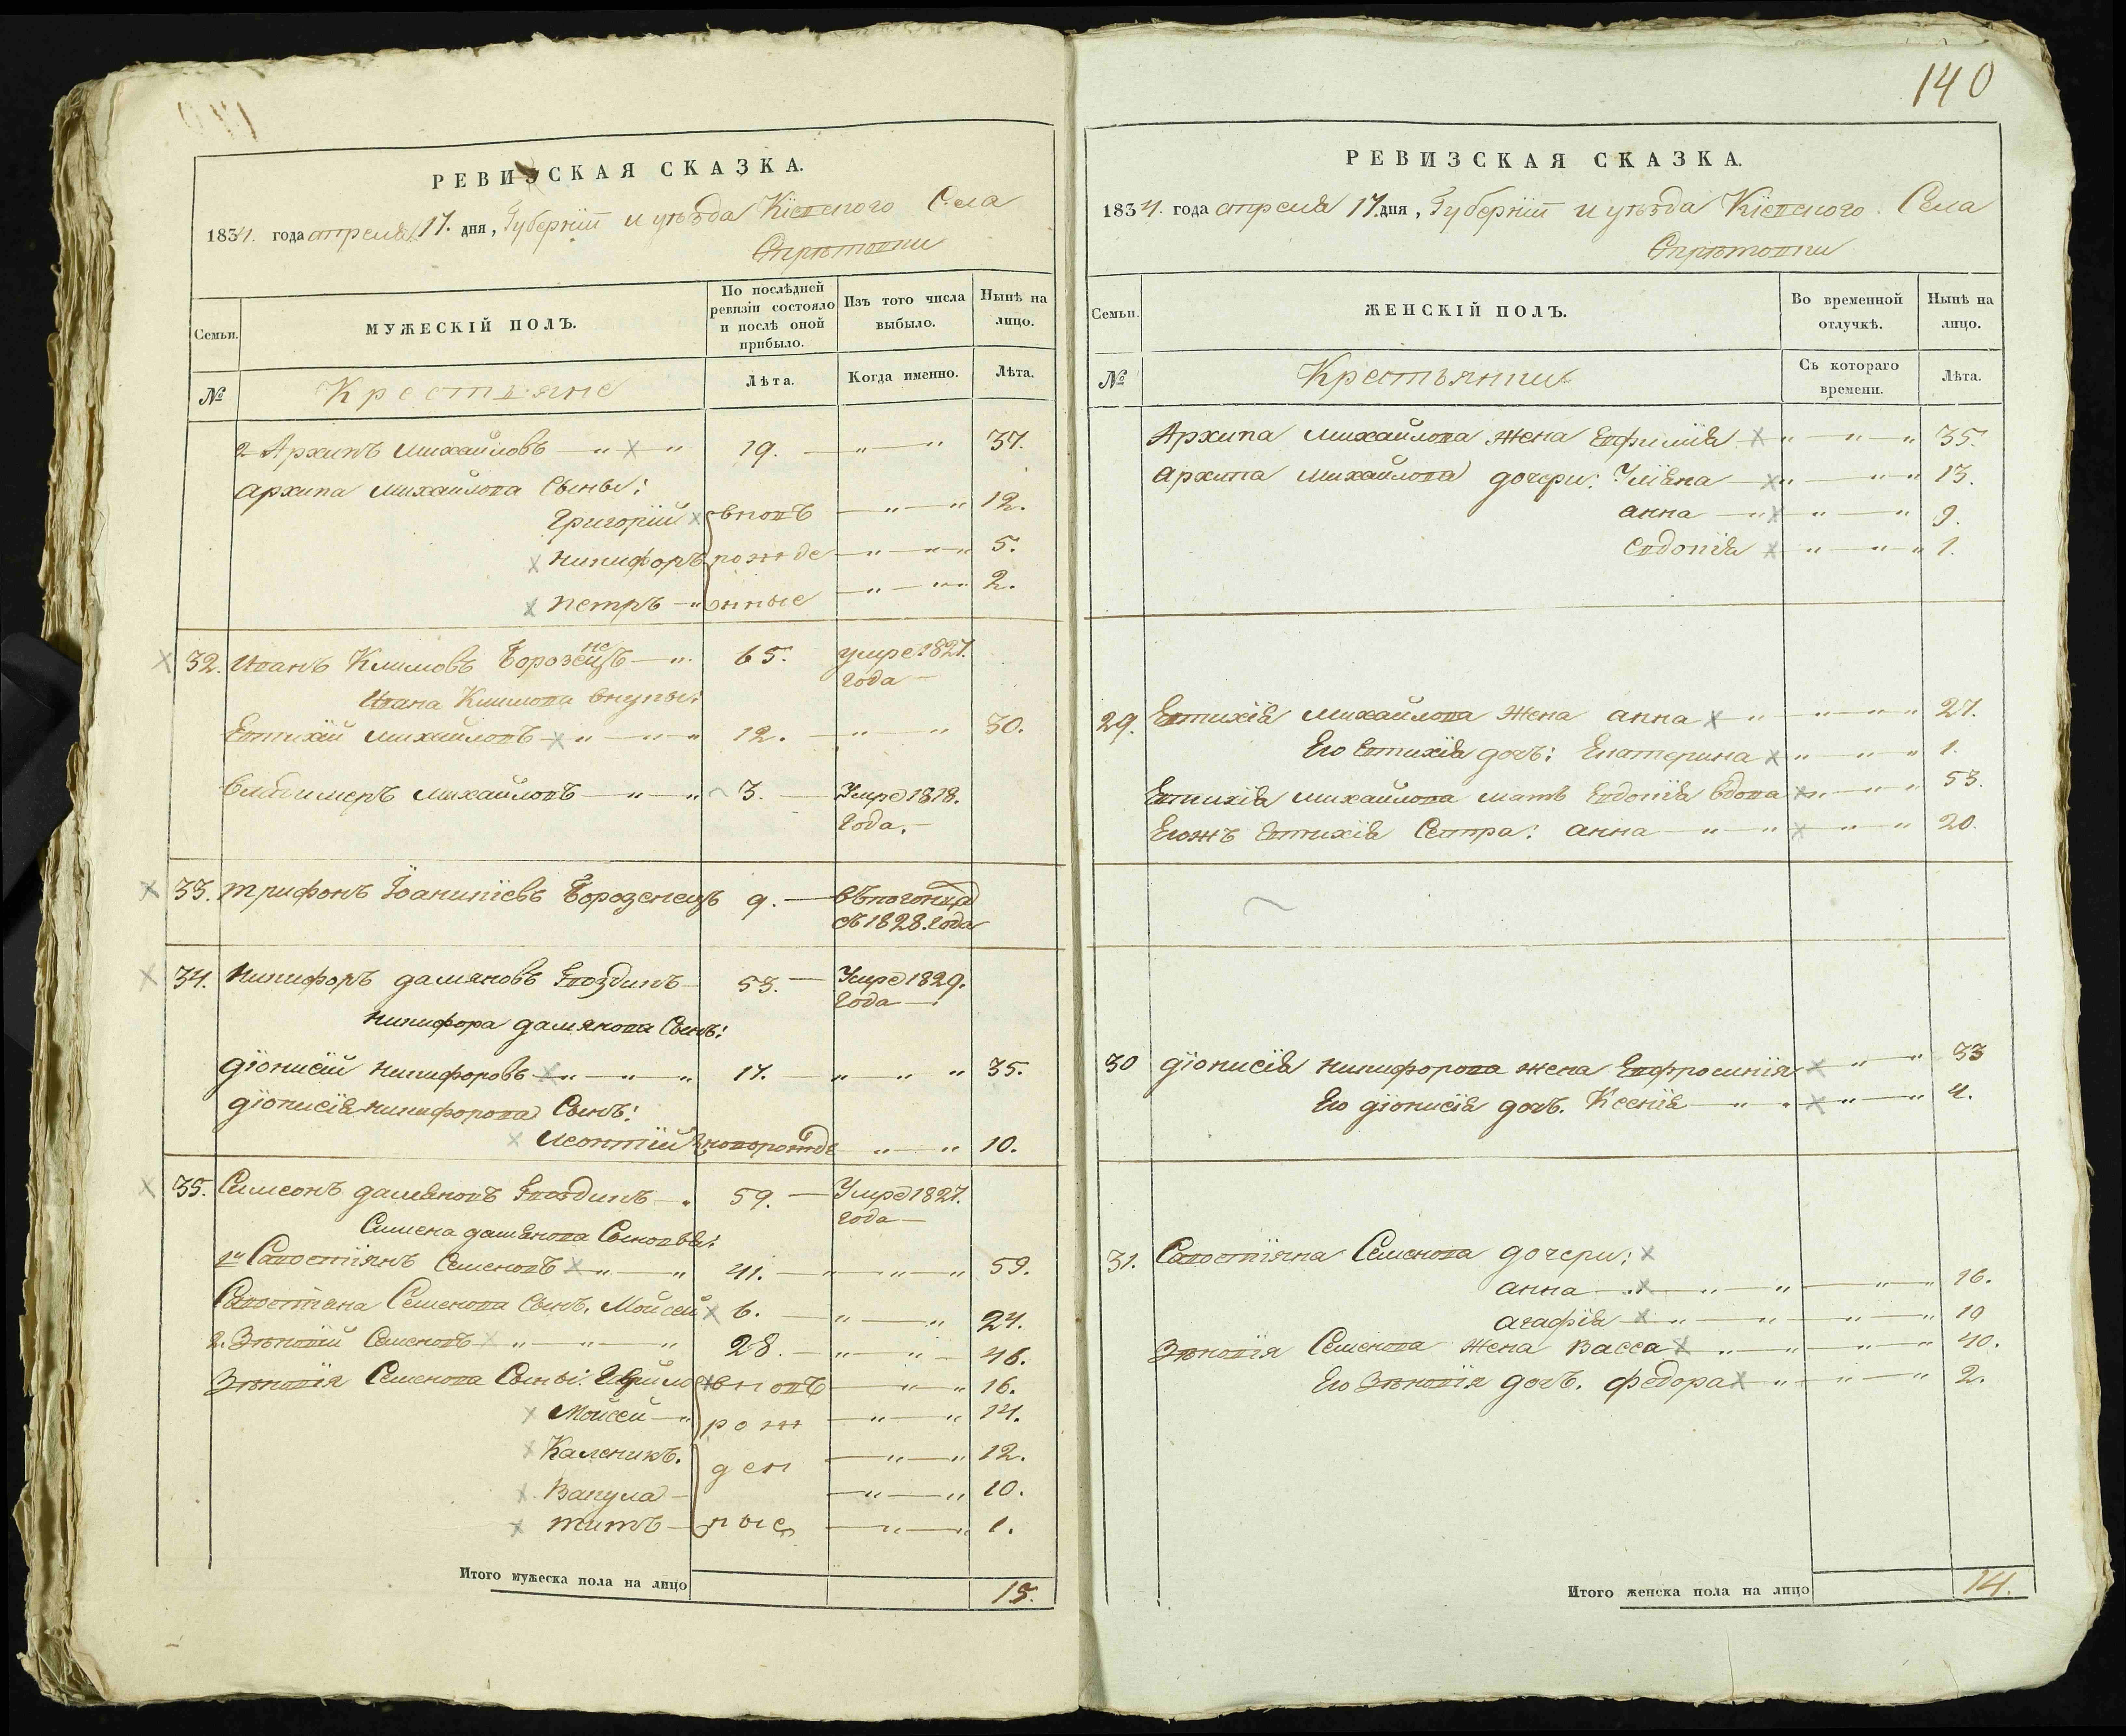 140
РЕВИЗСКАЯ СКАЗКА.
1834. года апреля 17. дня, Губерніи и уѣзда Кіевского Села
МУЖЕСКІЙ ПОЛЪ.
Семьи.
По послѣдней ревизіи состояло и послѣ оной прибыло.
Изъ того числа выбыло.
Нынѣ на лицо.
№
Крестьяне
Лѣта.
Когда именно.
Лѣта.
2 Архипъ Михайловъ — " — " 19. — " — " 37.
Архипа Михайлова Сыны:
Григорій вновь — " — " 12.
Никифоръ рожде — " — " 5.
Петръ — " нные — " — " 2.
32. Иванъ Климовъ — " 65. умре 1827. года —
Ивана Климова внуки:
Евтихій Михайловъ — " — " — " 12. — " — " 30.
Владимеръ Михайловъ — " — " 3. — Умре 1818. Года. —
33. Трифонъ Бородженецъ 9. — съ 1828. года
34. Никифоръ Дамяновъ Гвоздикъ — 53. — Умре 1829. Года —
Никифора Дамянова Сынъ:
Діонисій Никифоровъ — " — " — " 17. — " " " 35.
Діонисія Никифорова Сынъ:
Леонтій новорожде " — " 10.
35. Симеонъ Дамяновъ Гвоздикъ — " 59. — Умре 1827. года —
Симена Дамянова Сыновья:
1й Савостіянъ Семеновъ — " — " 41. — " — " — " 59.
Савостіяна Семенова сынъ. Мойсей 6. — " — " 24.
2. Зѣновій Семеновъ — " — " — " 28. — " — " — 46.
Зѣновія Семенова Сыны: вновь — " — " 16.
Мойсей — " рож — " — " 14.
Каленикъ. ден — " — " 12.
Вакула — — " — " 10.
Титъ — ные — " — " 1.
Итого мужеска пола на лицо 15.
РЕВИЗСКАЯ СКАЗКА.
1834. года апреля 17. дня, Губерніи и уѣзда Кіевского. Села
Семьи.
ЖЕНСКІЙ ПОЛЪ.
Во временной отлучкѣ.
Нынѣ на лицо.
№
Крестьянки
Съ котораго времени.
Лѣта.
Архипа Михайлова жена Евфимія " — " — " 35.
Архипа Михайлова дочери: Уліяна — " — " — " 13.
Анна — " " — " 9.
Евдокія " — " — " 1.
29. Евтихія Михайлова жена Анна — " — " — " 27.
Его Евтихія дочь: Екатерина " — " — " 1.
Евтихія Михайлова мать Евдокія вдова " — " — " 53.
Егожъ Евтихія Сестра: Анна — " — " — " — " 20.
30 Діонисія Никифорова жена Евфросинія — " — " 33
Его Діонисія дочь. Ксенія — " — " — " — " 4.
31. Савостіяна Семенова дочери:
Анна — " — " — " — " — " 16.
Агафія — " — " — " — " 10
Зѣновія Семенова жена Васса — " — " — " — " 40.
Его Зѣновія дочь. Федора — " — " — " 2.
Итого женска пола на лицо 14.